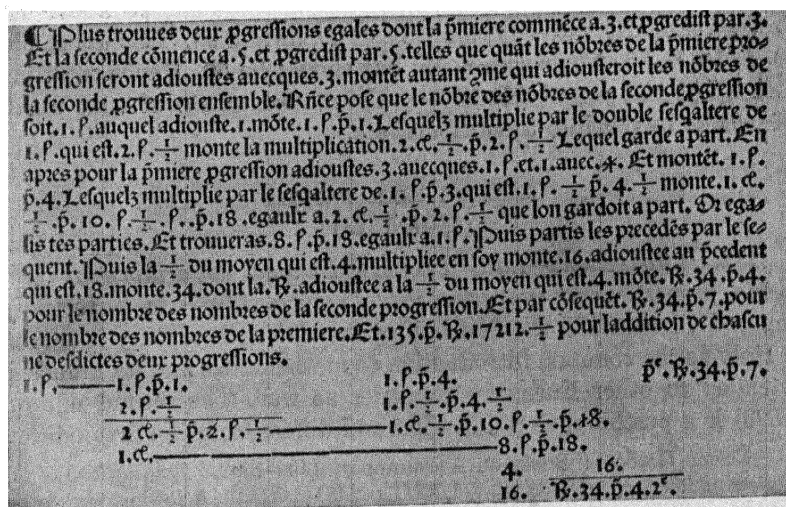 ¶ Plus trouues deux ꝓgressions egales dont la p̃miere commẽce a.3.et ꝓgredist par.3.
Et la seconde cõmence a.5.et ꝓgredist par.5.telles que quãt les nõbres de la p̃miere pro⸗
gression seront adioustes auecques.3.montẽt autant ꝯme qui adiousteroit les nõbres de
la seconde ꝓgression ensemble.Rñce pose que le nõbre des nõbres de la seconde ꝓgression
soit.1.ꝭ.auquel adiouste.1.mõte.1.ꝭ.p̃.1.Lesquelz multiplie par le double sesqaltere de
1.ꝭ.qui est.2.ꝭ.1/2 monte la multiplication.2.ct.1/2.p̃.2.ꝭ.1/2 Lequel garde a part.En
apres pour la p̃miere ꝓgression adioustes.3.auecques.1.ꝭ.et.1.auec.⁎.Et montẽt.1.ꝭ.
p̃.4.Lesquelz multiplie par le sesqaltere de.1.ꝭ.p̃.3.qui est.1.ꝭ.1/2 p̃.4.1/2 monte.1.ct.
1/2.p̃.10.ꝭ.1/2.ꝭ.p̃.18.egaulx a.2.ct.1/2.p̃.2.ꝭ.1/2 que lon gardoit a part.Or ega⸗
lis tes parties.Et trouueras.8.ꝭ.p̃.18.egaulx a.1.ꝭ.Puis partis les precedẽs par le se⸗
quent.Puis la 1/2 du moyen qui est.4.multipliee en soy monte.16.adioustee au p̃cedent
qui est.18.monte.34.dont la.℞.adioustee a la 1/2 du moyen qui est.4.mõte.℞.34.p̃.4.
pour le nombre des nombres de la seconde progression.Et par cõsequẽt.℞.34.p̃.7.pour
le nombre des nombres de la premiere.Et.135.p̃.℞.17212.1/2 pour laddition de chascu
ne desdictes deux progressions.
1.ꝭ.——1.ꝭ.p̃.1. 1.ꝭ.p̃.4. p̃ᵉ.℞.34.p̃.7.
2.ꝭ.1/2 1.ꝭ.1/2.p̃.4.1/2
2 ct.1/2 p̃.2.ꝭ.1/2——1.ct.1/2.p̃.10.ꝭ.1/2.p̃.18.
1.ct.——8.ꝭ.p̃.18.
4. 16.
16. ℞.34.p̃.4.2ᵉ.